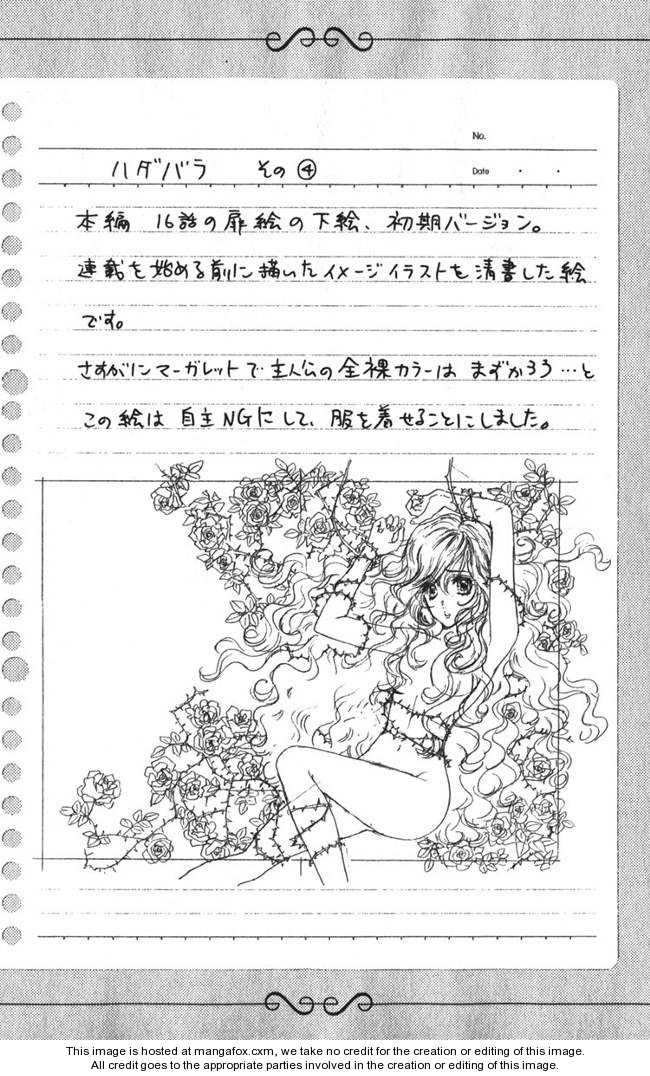 No.
ハダバラ その④
Date ・ ・
本編 16話の扉絵の下絵、初期バージョン。
連載を始める前に描いたイメージイラストを清書した絵
です。
さすがにマーガレットで主人公の全裸カラーは まずかろう…と
この絵は 自主NGにして、服を着せることにしました。
This image is hosted at mangafox.cxm, we take no credit for the creation or editing of this image.
All credit goes to the appropriate parties involved in the creation or editing of this image.